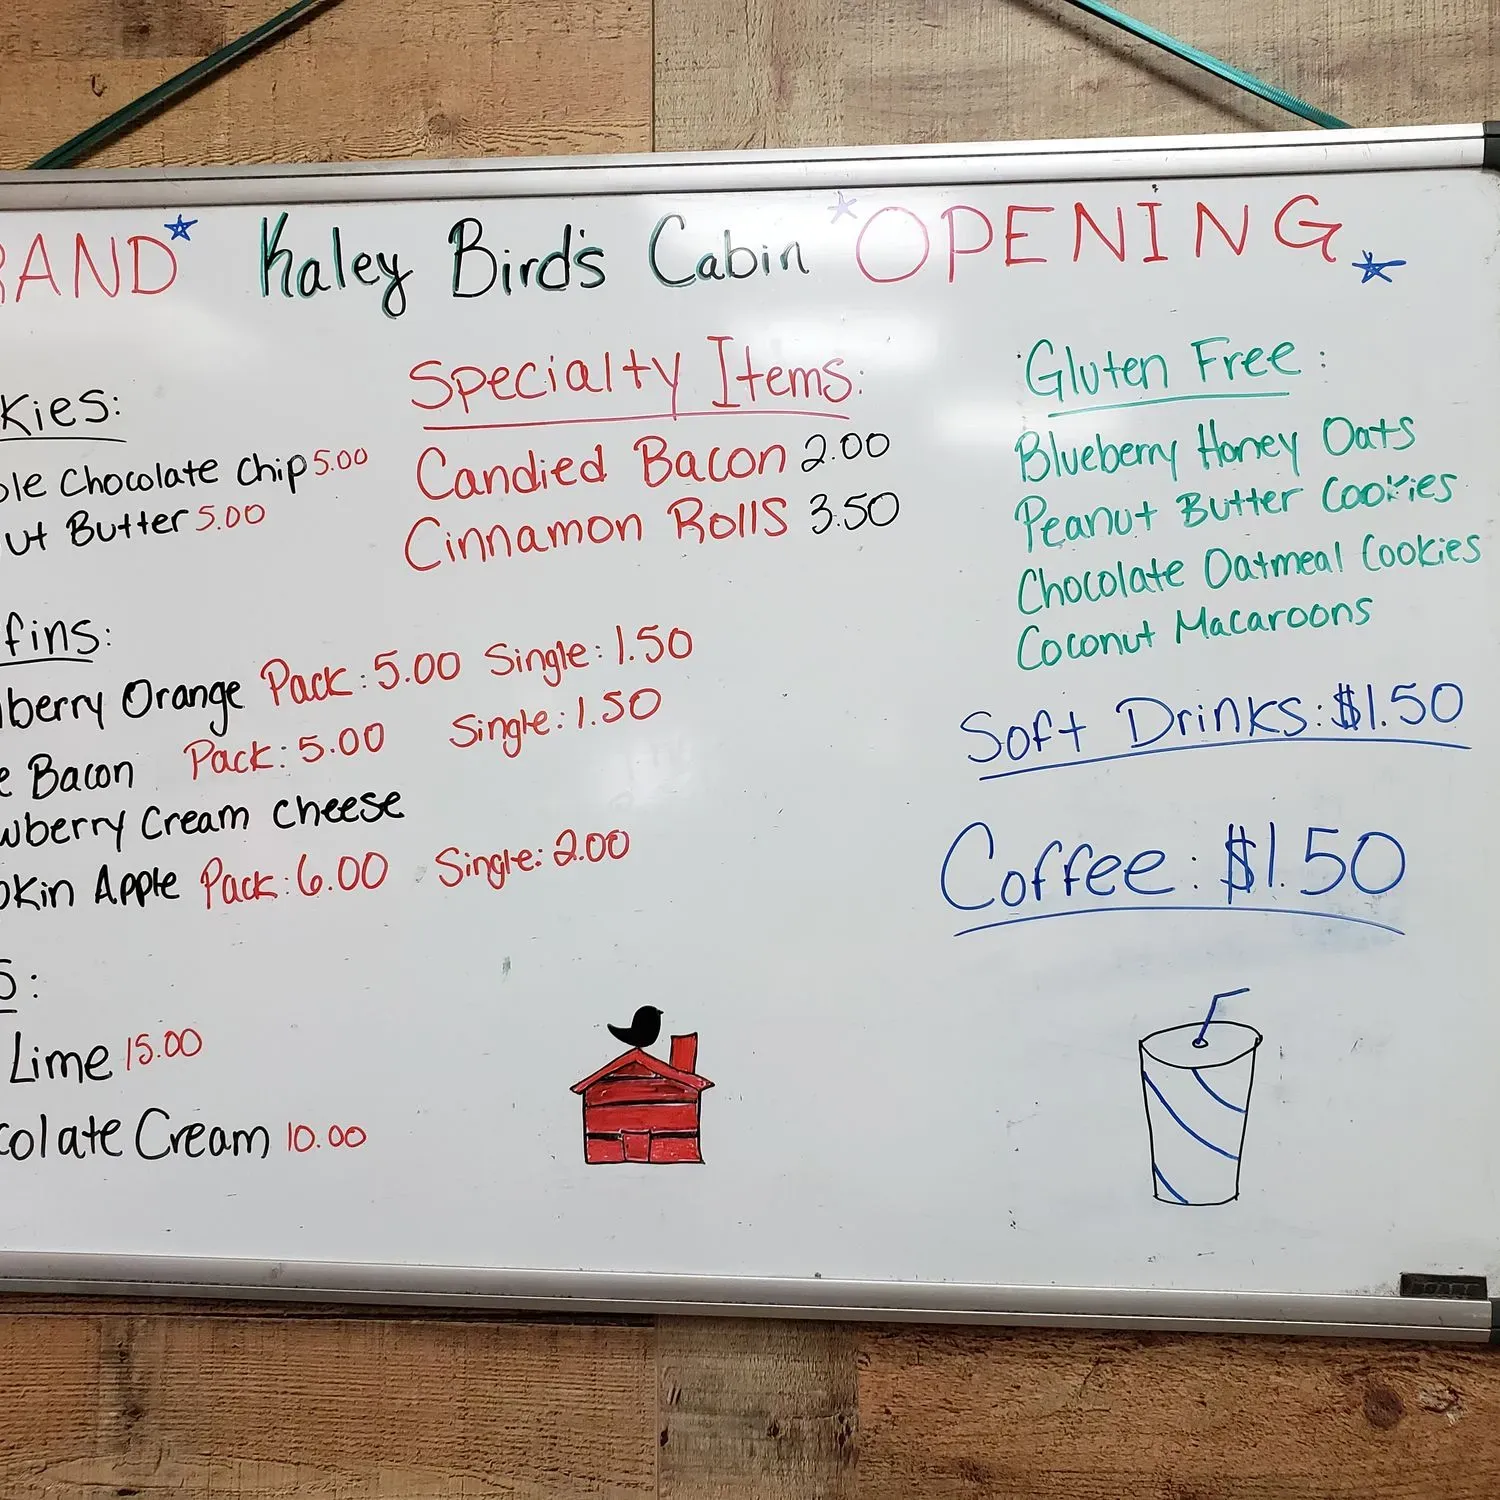 RAND Kaley Bird's Cabin OPENING
kies:
ble Chocolate Chip 5.00
ut Butter 5.00
Specialty Items:
Candied Bacon 2.00
Cinnamon Rolls 3.50
fins:
berry Orange Pack: 5.00 Single: 1.50
e Bacon Pack: 5.00 Single: 1.50
wberry Cream Cheese
pkin Apple Pack: 6.00 Single: 2.00
s:
Lime 15.00
colate Cream 10.00
Gluten Free:
Blueberry Honey Oats
Peanut Butter Cookies
Chocolate Oatmeal Cookies
Coconut Macaroons
Soft Drinks: $1.50
Coffee: $1.50